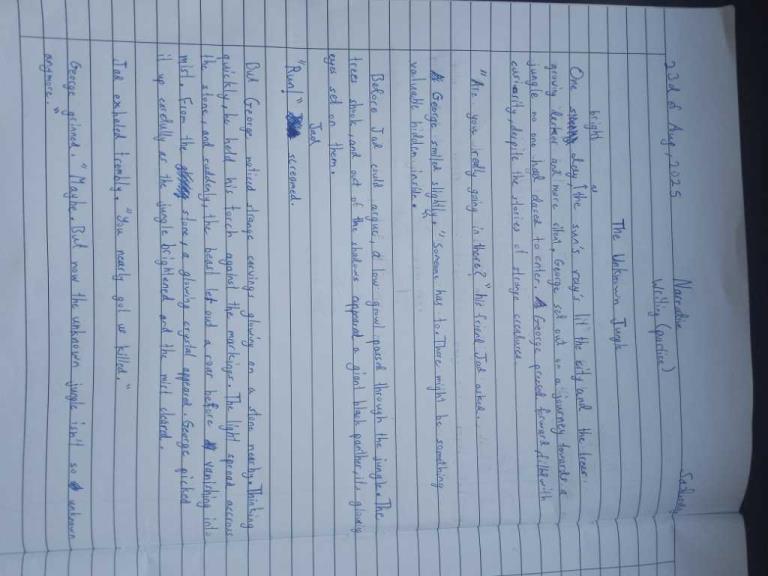 23rd of Aug, 2025
Narrative
Writing (practice)
Saturday
The Unknown Jungle
bright
One day, the sun's ray's lit the city and the trees
growing darker and more silent, George set out on a journey towards a
jungle no one had dared to enter. George pressed forward, filled with
curiosity, despite the stories of strange creatures.
"Are you really going in there?" his friend Jad asked.
George smiled slightly, "Someone has to. There might be something
valuable hidden inside."
Before Jad could argue, a low growl passed through the jungle. The
trees shook, and out of the shadows appeared a giant black panther, its glowing
eyes set on them.
Jad
"Run!" screamed.
But George noticed strange carvings glowing on a stone nearby. Thinking
quickly, he held his torch against the markings. The light spread accross
the stone, and suddenly, the beast let out a roar before vanishing into
mist. From the stone, a glowing crystal appeared. George picked
it up carefully as the jungle brightened and the mist cleared.
Jad exhaled trembly. "You nearly got us killed."
George grinned. "Maybe. But now the unknown jungle isn't so unknown
anymore."